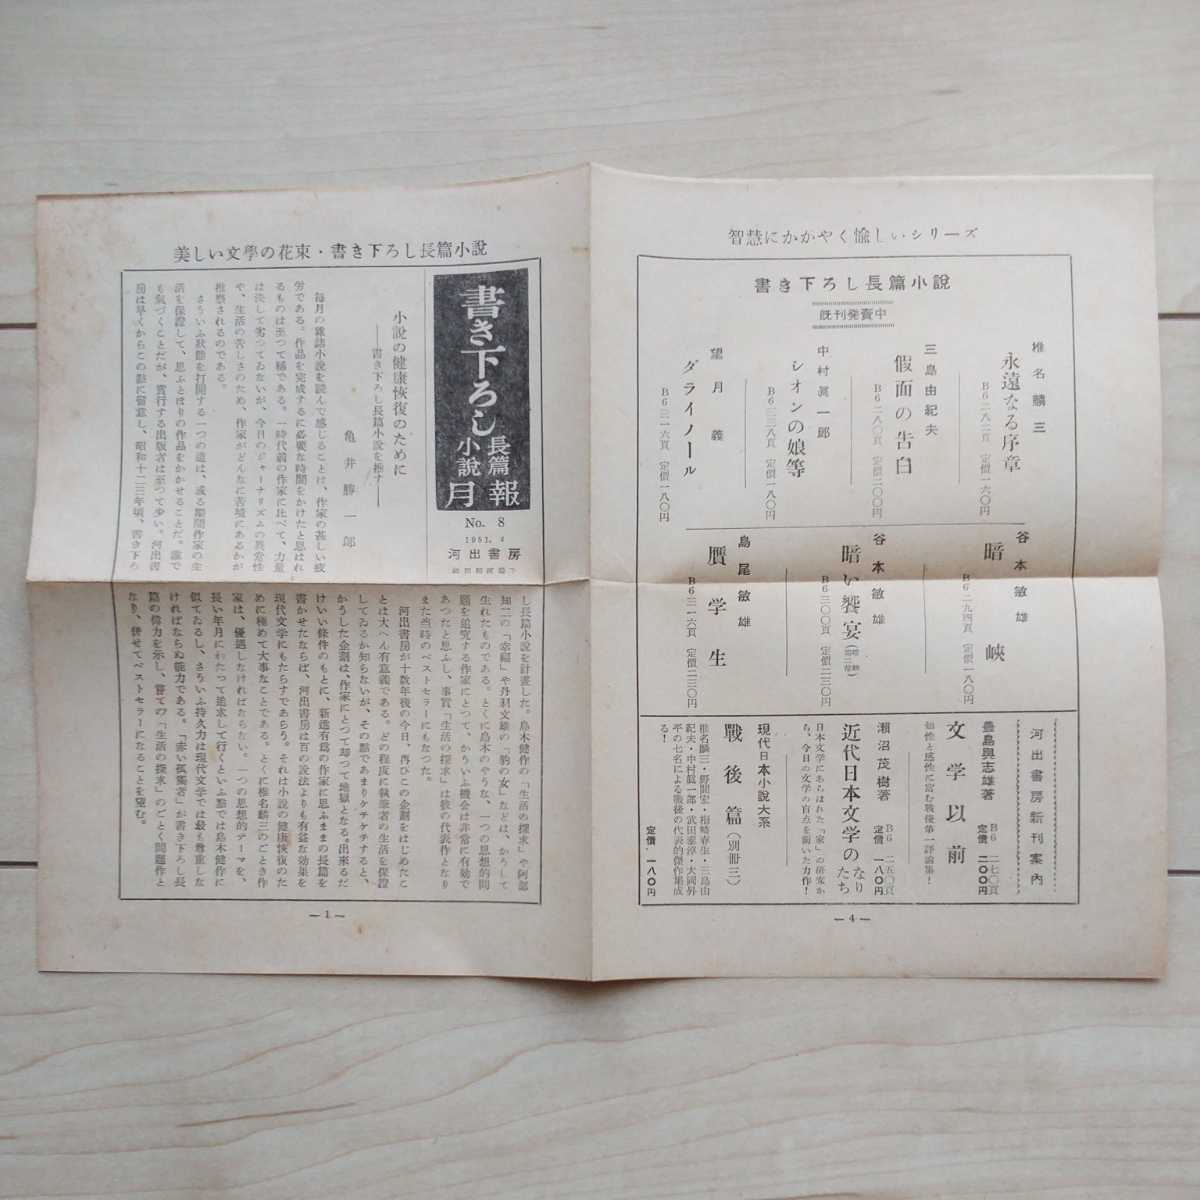 智慧にかがやく愉しいシリーズ
書き下ろし長篇小說
既刊発賣中
椎名麟三
永遠なる序章
B6二八二頁 定價一六〇円
三島由紀夫
假面の告白
B6二八〇頁 定價二〇〇円
中村眞一郎
シオンの娘等
B6三三八頁 定價一八〇円
望月義
ダライノール
B6三一六頁 定價一八〇円
谷本敏雄
暗峽
B6二九四頁 定價一八〇円
谷本敏雄
暗い饗宴
B6三〇〇頁 定價二三〇円
島尾敏雄
贋学生
B6三一六頁 定價二三〇円
河出書房新刊案內
豊島與志雄著
文学以前
B6 二七〇頁
定價 二〇〇円
知性と感性に富む戰後第一評論集！
瀨沼茂樹著
近代日本文学のなりたち
B6 二五〇頁
定價 一八〇円
日本文学にあらはれた「家」の硏究か
ら、今日の文学の盲点を衝いた力作！
現代日本小說大系
戰後篇（別冊三）
椎名麟三・野間宏・梅崎春生・三島由
紀夫・中村眞一郎・武田泰淳・大岡昇
平の七名による戰後の代表的傑作集成
る！
定價 一八〇円
—4—
美しい文學の花束・書き下ろし長篇小說
書き下ろし長篇小說月報
No. 8
1951. 4
河出書房
小說の健康恢復のために
——書き下ろし長篇小說を推す——
亀井勝一郎
每月の雜誌小說を讀んで感じることは、作家の甚しい疲
労である。作品を完成するに必要な時間をかけたと思はれ
るものは至つて稀である。一時代前の作家に比べて、力量
は決して劣つてゐないが、今日のジャーナリズムの異常性
や、生活の苦しさのため、作家がどんなに苦境にあるかが
推察されるのである。
さういふ狀態を打開する一つの道は、或る期間作家の生
活を保證して、思ふとほりの作品をかかせることだ。誰で
も氣づくことだが、實行する出版者は至つて少い。河出書
房は早くからこの點に留意し、昭和十二三年頃、書き下ろ
し長篇小說を計畫した。島木健作の「生活の探求」や阿部
知二の「幸福」や丹羽文雄の「豹の女」などは、かうして
生れたものである。とくに島木のやうな、一つの思想的問
題を追究する作家にとつて、かういふ機会は非常に有効で
あつたと思ふし、事實「生活の探求」は彼の代表作となり
また当時のベストセラーにもなつた。
河出書房が十数年後の今日、再びこの企劃をはじめたこ
とは大へん有意義である。どの程度に執筆者の生活を保證
してゐるか知らないが、その點であまりケチケチすると、
かうした企劃は、作家にとつて却つて地獄となる。出來るだ
けいい條件のもとに、新進有爲の作家に思ふままの長篇を
書かせたならば、河出書房は百の說法よりも有益な効果を
現代文学にもたらすであらう。それは小說の健康恢復のた
めに極めて大事なことである。とくに椎名麟三のごとき作
家は、優遇しなければならない。一つの思想的テーマを、
長い年月にわたつて追求して行くといふ點では島木健作に
似てゐるし、さういふ持久力は現代文学では最も尊重しな
ければならぬ能力である。「赤い孤獨者」が書き下ろし長
篇の偉力を示し、嘗ての「生活の探求」のごとく問題作と
なり、併せてベストセラーになることを望む。
—1—